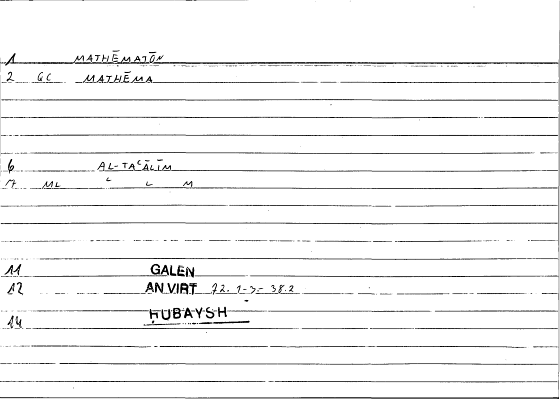 1 MATHĒMATŌN
2 GC MATHĒMA
6 AL-TAʿĀLĪM
7 ML ʿ L M
11 GALEN
12 AN.VIRT 72.1-3- 38.2
14 ḤUBAYSH